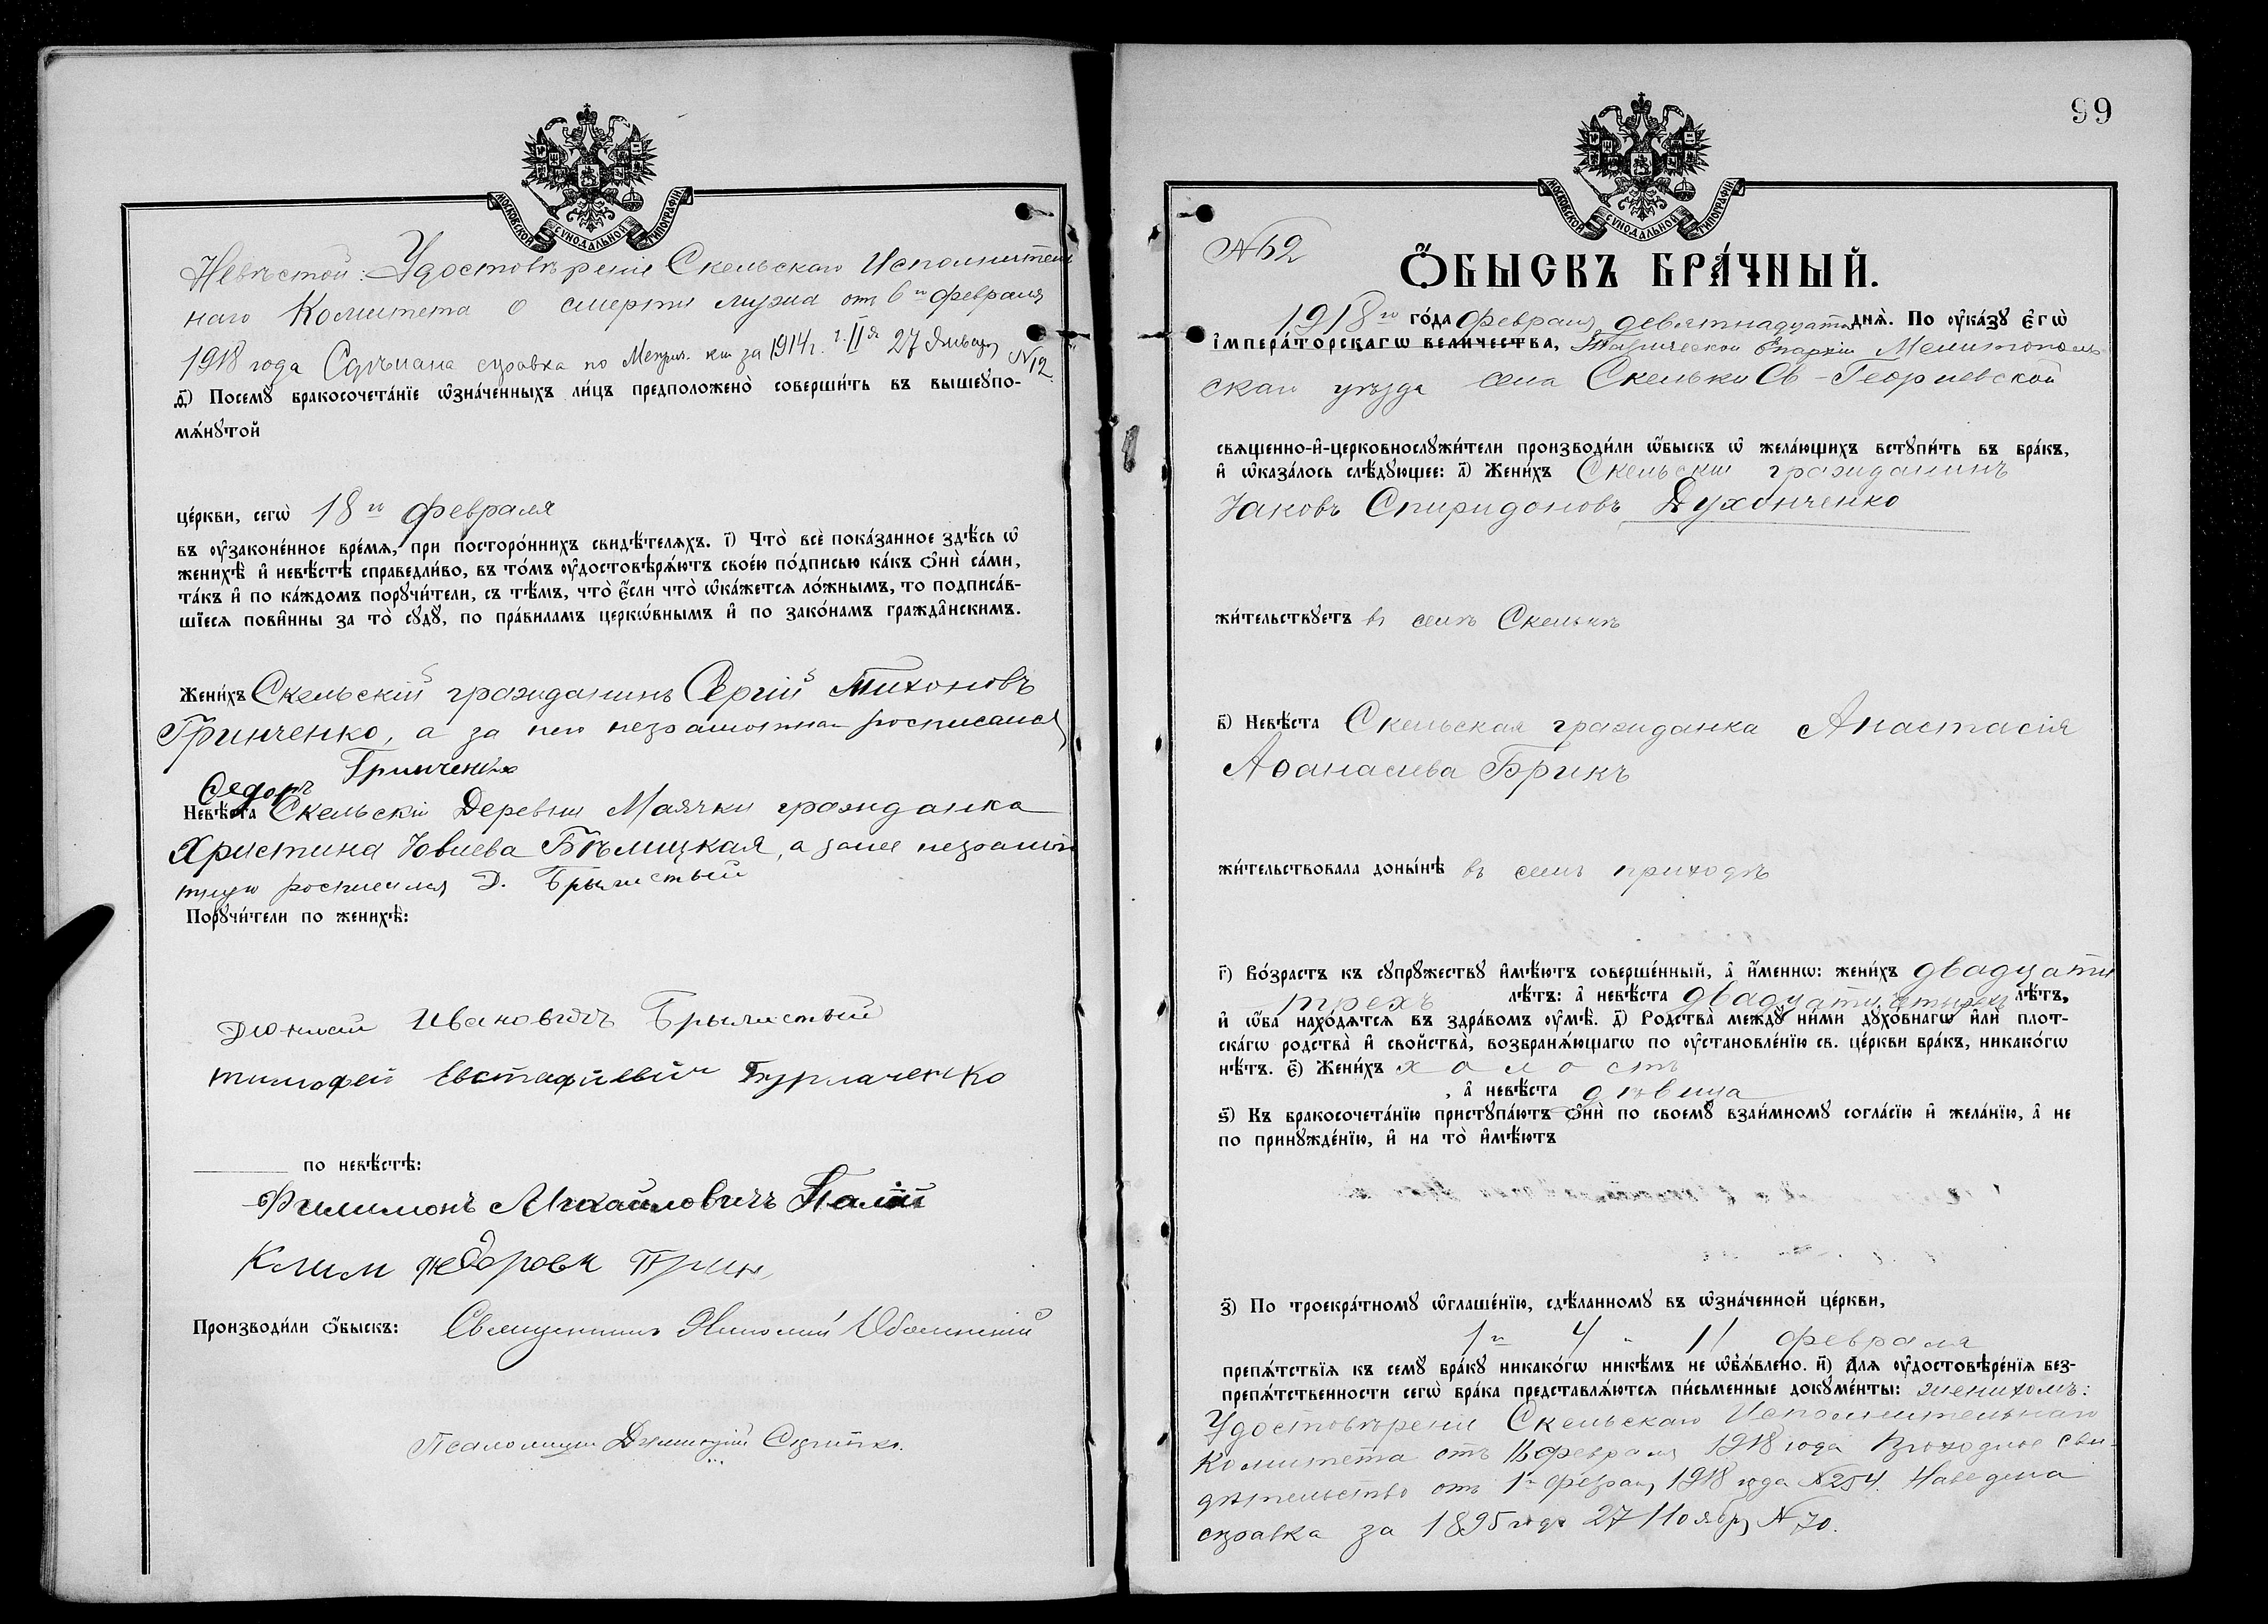 МОСКОВСКОЙ СѴНОДАЛЬНОЙ ТИПОГРАФІИ
Невѣстой: Удостовѣреніе Скельскаго Исполнитель
наго Комитета о смерти мужа отъ 6го февраля
1918 года Сдѣлана справка по Метрич. кн за 1914 г. ч. II я 27 Января №12
д҃) Посемꙋ бракосочета́нїе ѡ҆зна́ченныхъ ли́цъ предположено̀ соверши́ть въ вышеꙋпо-
мѧ́нꙋтой
це́ркви, сегѡ̀ 18го февраля
въ ᲂу҆законе́нное вре́мѧ, при посторо́ннихъ свидѣ́телѧхъ. і҃) Что̀ всѐ пока́занное здѣ́сь ѡ҆
женихѣ̀ и҆ невѣ́стѣ справедли́во, въ то́мъ ᲂу҆достовѣрѧ́ютъ свое́ю по́дписью ка́къ ѻ҆нѝ са́ми,
та́къ и҆ по ка́ждомъ порꙋчи́тели, съ тѣ́мъ, что̀ є҆́сли что̀ ѡ҆ка́жетсѧ ло́жнымъ, то подписа́в-
шїесѧ пови́нны за то̀ сꙋдꙋ̀, по пра́виламъ церкѡ́внымъ и҆ по зако́намъ гражда́нскимъ.
Жени́хъ Скельскій гражданинъ Сергій Тихоновъ
Гринченко, а за него неграмотнаго росписался
Федоръ Гринченко
Невѣ́ста Скельскій Деревни Маячки гражданка
Христина Іовлева Бѣлицкая, а за нее неграмот
ную росписался Д. Брылистый
Порꙋчи́тели по женихѣ̀:
Дионисій Ивановичъ Брылистый
тимофей Евстафиевич Бурлаченко
по невѣ́стѣ:
Филимонъ Михайловичъ Палій
Клим федорови Грин
Производи́ли ѻ҆́быскъ: Священникъ Николай Оболенскій
Псаломщикъ Димитрій
99
МОСКОВСКОЙ СѴНОДАЛЬНОЙ ТИПОГРАФІИ
№ 62
Ѻ҆́БЫСКЪ БРА́ЧНЫЙ.
1918го го́да Февраля девятнадцата днѧ̀. По ᲂу҆ка́зꙋ є҆гѡ̀
і҆мпера́торскагѡ вели́чества, Таврической Епархіи Мелитополь-
скаго уѣзда села Скельки Св-Георгіевской
свѧщенно-и҆-церковнослꙋжи́тели производи́ли ѡ҆́быскъ ѡ҆ жела́ющихъ встꙋпи́ть въ бра́къ,
и҆ ѡ҆каза́лось слѣ́дꙋющее: а҃) Жени́хъ Скельскій гражданинъ
Іаковъ Спиридоновъ Духонченко
жи́тельствꙋетъ въ селѣ Скелькѣ
в҃) Невѣ́ста Скельская гражданка Анастасія
Аѳанасіева Брикъ
жи́тельствовала доны́нѣ въ семъ приходѣ
г҃) Во́зрастъ къ сꙋпрꙋ́жествꙋ и҆мѣ́ютъ соверше́нный, а҆ и҆́меннѡ: жени́хъ двадцати
трехъ лѣ́тъ: а҆ невѣ́ста двадцати четырехъ лѣ́тъ,
и҆ ѡ҆́ба нахо́дѧтсѧ въ здра́вомъ ᲂу҆мѣ̀. д҃) Родства̀ междꙋ̀ ни́ми дꙋхо́внагѡ и҆лѝ плот-
ска́гѡ родства̀ и҆ свойства̀, возбранѧ́ющагѡ по ᲂу҆становле́нїю св. це́ркви бра́къ, никако́гѡ
нѣ́тъ. є҃) Жени́хъ холостъ
, а҆ невѣ́ста дѣвица
ѕ҃) Къ бракосочета́нїю пристꙋпа́ютъ ѻ҆нѝ по своемꙋ̀ взаи́мномꙋ согла́сїю и҆ жела́нїю, а҆ не
по принꙋжде́нїю, и҆ на то̀ и҆мѣ́ютъ
з҃) По троекра́тномꙋ ѡ҆глаше́нїю, сдѣ́ланномꙋ въ ѡ҆зна́ченной це́ркви,
1го 4 " 11 февраля
препѧ́тствїѧ къ семꙋ̀ бра́кꙋ никако́гѡ никѣ́мъ не ѡ҆б̾ѧ́влено. и҃) Длѧ ᲂу҆достовѣре́нїѧ без-
препѧ́тственности сегѡ̀ бра́ка представлѧ́ютсѧ пи́сьменные докꙋме́нты: женихомъ:
Удостовѣреніе Скельскаго Исполнительнаго
Комитета отъ 16 февраля 1918 года сви-
дѣтельство отъ 1го феврал, 1918 года №254. Наведена
справка за 1895 года 27 Ноября №70.